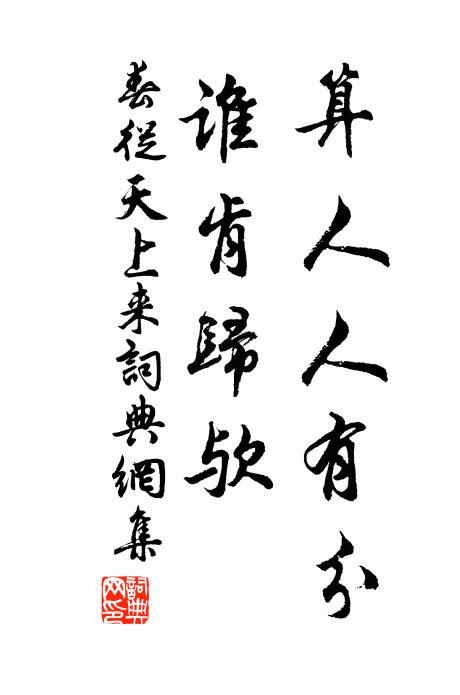 算人人有分
谁肯歸欤
春從天上来詞典網集
詞典网印